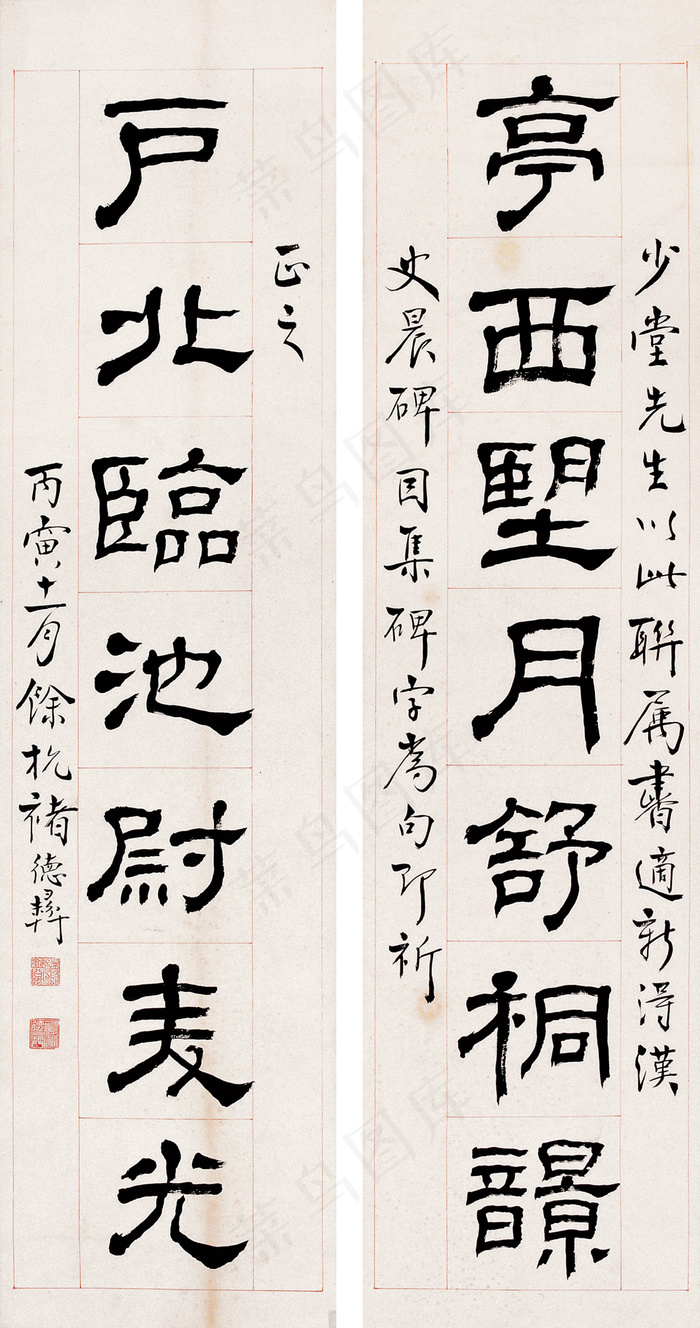 少堂先生以此聯属書適新得漢
亭西朢月舒桐
史晨碑因集碑字为句即祈
正之
户北臨池尉麦光
丙寅十一月餘杭褚德彝
菜鸟图库